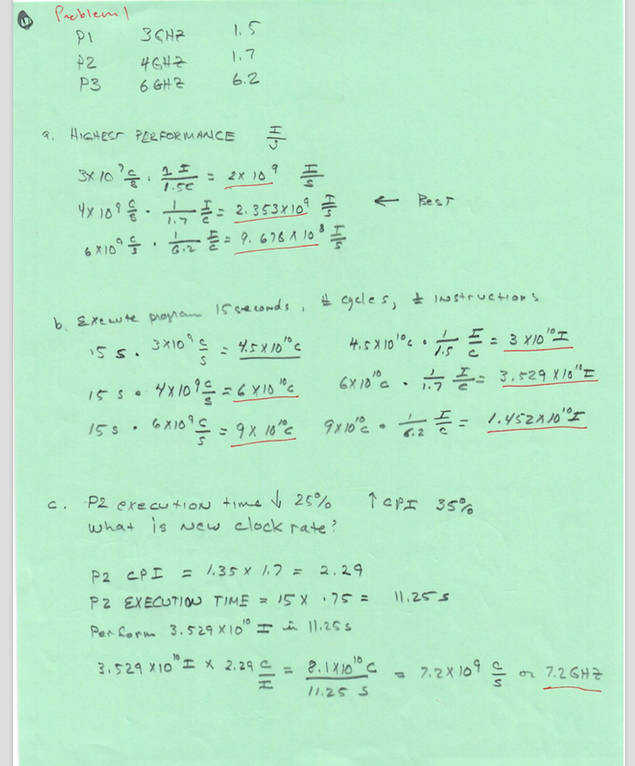 ① Problem 1
P1 3GHZ 1.5
P2 4GHZ 1.7
P3 6GHZ 6.2
a. HIGHEST PERFORMANCE I/s
3x10⁹ c/s · 1 I/1.5C = 2x10⁹ I/s
4x10⁹ c/s · 1/1.7 I/c = 2.353x10⁹ I/s ← BEST
6x10⁹ c/s · 1/6.2 I/c = 9.678x10⁸ I/s
b. Execute program 15 seconds, # cycles, # instructions
15 s · 3x10⁹ c/s = 4.5x10¹⁰c 4.5x10¹⁰c · 1/1.5 I/c = 3x10¹⁰I
15 s · 4x10⁹ c/s = 6x10¹⁰c 6x10¹⁰c · 1/1.7 I/c = 3.529x10¹⁰I
15 s · 6x10⁹ c/s = 9x10¹⁰c 9x10¹⁰c · 1/6.2 I/c = 1.452x10¹⁰I
c. P2 execution time ↓ 25% ↑ CPI 35%
what is new clock rate?
P2 CPI = 1.35 x 1.7 = 2.29
P2 EXECUTION TIME = 15 x .75 = 11.25 s
Perform 3.529x10¹⁰ I in 11.25s
3.529x10¹⁰ I x 2.29 c/I = 8.1x10¹⁰ C/11.25 s = 7.2x10⁹ c/s or 7.2GHZ